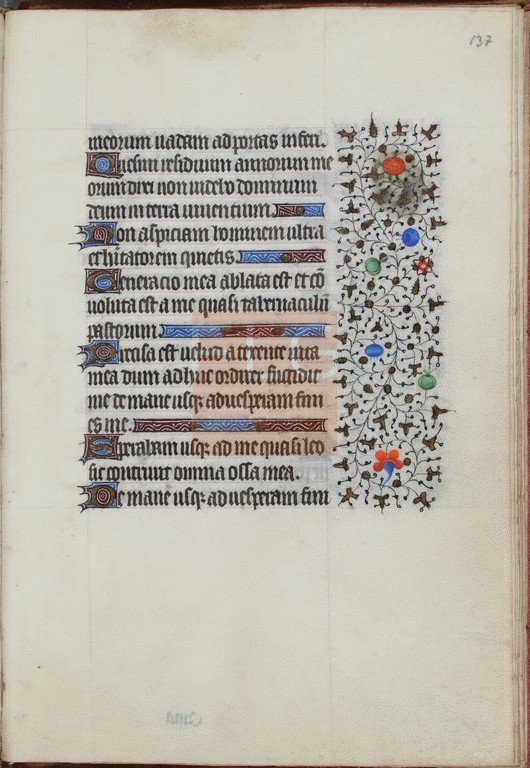 137
meorum uadam ad portas inferi.
Quesiui residuum annorum me
orum dixi non uidebo dominum
deum in terra uiuentium.
Non aspiciam hominem ultra
et habitatorem quietis.
Generacio mea ablata est et cō
uoluta est a me quasi tabernaculū
pastorum.
Precisa est uelud a texente uita
mea dum adhuc ordirer succidit
me de mane usqȝ ad uesperam fini
es me.
Sperabam usqȝ ad me quasi leo
sic contriuit omnia ossa mea.
De mane usqȝ ad uesperam fini